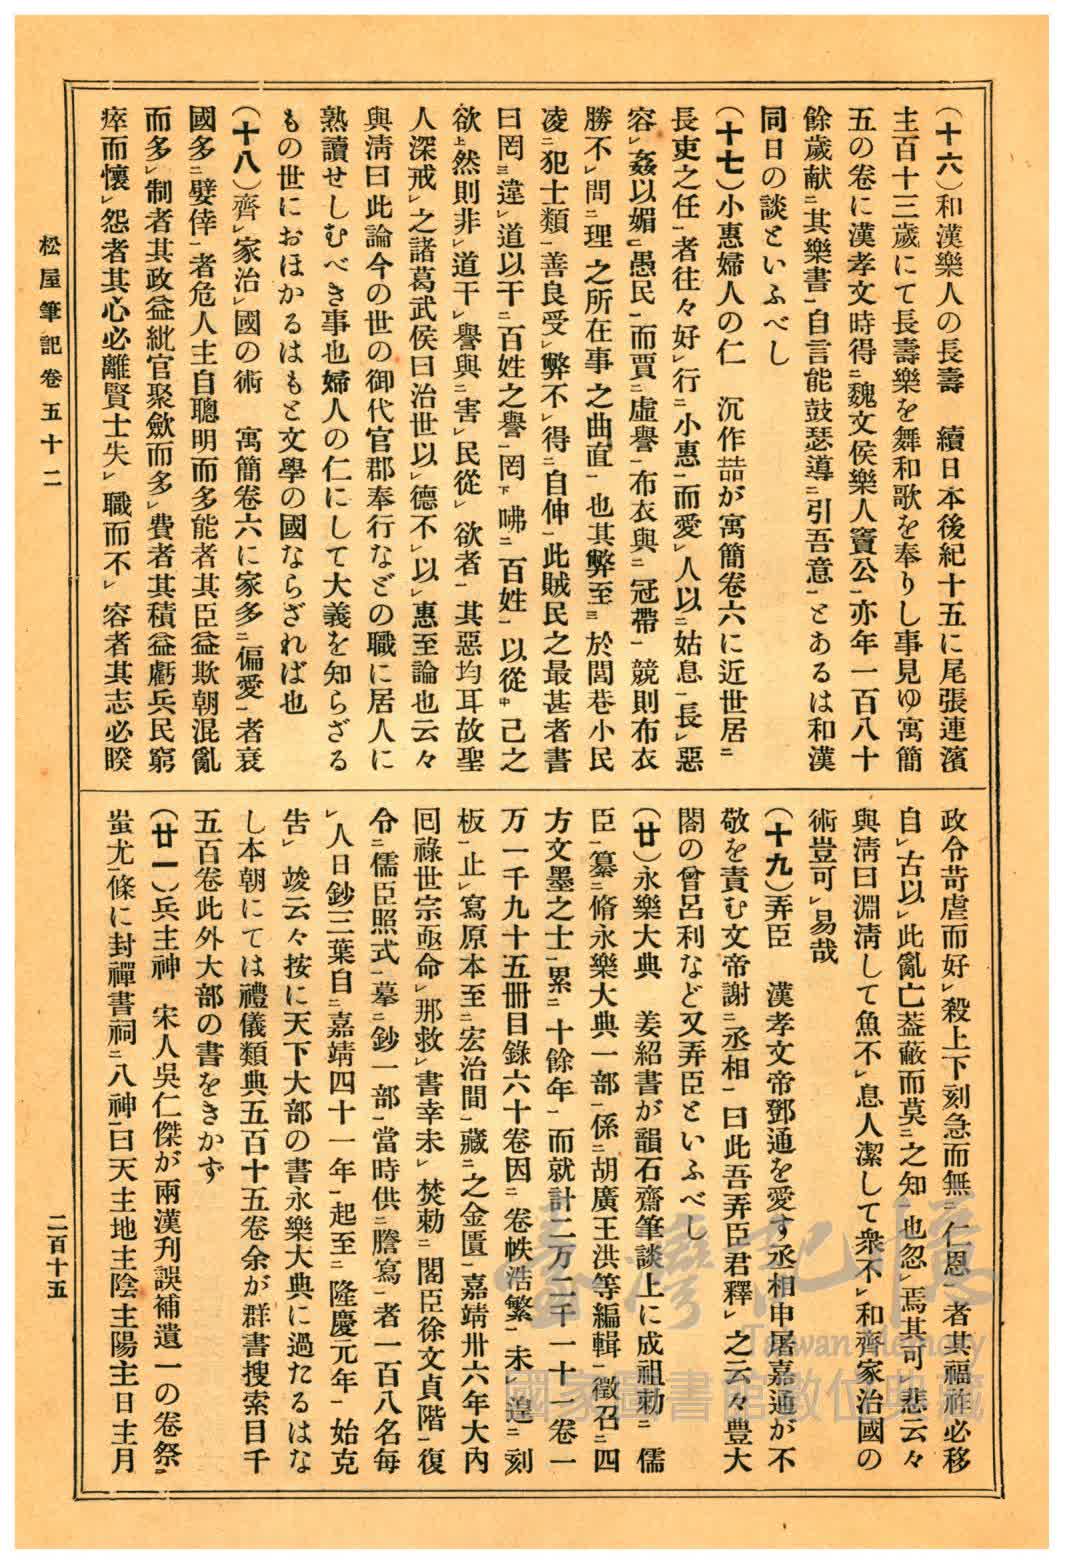 (十六)和漢樂人の長壽　續日本後紀十五に尾張連濱
主百十三歲にて長壽樂を舞和歌を奉りし事見ゆ寓簡
五の卷に漢孝文時得㆓魏文侯樂人竇公㆒亦年一百八十
餘歲献㆓其樂書㆒自言能鼓瑟導㆓引吾意㆒とあるは和漢
同日の談といふべし
(十七)小惠婦人の仁　沉作喆が寓簡卷六に近世居㆓
長吏之任㆒者往々好㆑行㆓小惠㆒而愛㆑人以㆓姑息㆒長㆑惡
容㆑姦以媚㆓愚民㆒而賈㆓虛譽㆒布衣與㆓冠帶㆒競則布衣
勝不㆑問㆓理之所在事之曲直㆒也其弊至㆔於閭巷小民
凌㆓犯士類㆒善良受㆑弊不㆑得㆓自伸㆒此賊民之最甚者書
曰罔㆔違㆑道以干㆓百姓之譽㆒罔㆘咈㆓百姓㆒以從㆗己之
欲㆖然則非㆑道干㆑譽與㆓害㆑民從㆑欲者㆒其惡均耳故聖
人深戒㆑之諸葛武侯曰治世以㆑德不㆑以㆑惠至論也云々
與淸曰此論今の世の御代官郡奉行などの職に居人に
熟讀せしむべき事也婦人の仁にして大義を知らざる
もの世におほかるはもと文學の國ならざれば也
(十八)齊㆑家治㆑國の術　寓簡卷六に家多㆓偏愛㆒者衰
國多㆓嬖倖㆒者危人主自聰明而多能者其臣益欺朝混亂
而多㆑制者其政益紕官聚歛而多㆑費者其積益虧兵民窮
瘁而懷㆑怨者其心必離賢士失㆑職而不㆑容者其志必睽
政令苛虐而好㆑殺上下刻急而無㆓仁恩㆒者其福祚必移
自㆑古以㆑此亂亡葢蔽而莫㆓之知㆒也忽㆑焉其可㆑悲云々
與淸曰淵淸して魚不㆑息人潔して衆不㆑和齊家治國の
術豈可㆑易哉
(十九)弄臣　漢孝文帝鄧通を愛す丞相申屠嘉通が不
敬を責む文帝謝㆓丞相㆒曰此吾弄臣君釋㆑之云々豊大
閤の曾呂利など又弄臣といふべし
(廿)永樂大典　姜紹書が韻石齋筆談上に成祖勅㆓儒
臣㆒纂㆓脩永樂大典一部㆒係㆓胡廣王洪等編輯㆒徵召㆓四
方文墨之士㆒累㆓十餘年㆒而就計二万二千一十一卷一
万一千九十五冊目錄六十卷因㆓卷帙浩繁㆒未㆑遑㆓刻
板㆒止㆑寫原本至㆓宏治間㆒藏㆓之金匱㆒嘉靖卅六年大內
囘祿世宗亟命㆑那救㆑書幸未㆑焚勅㆓閣臣徐文貞階㆒復
令㆓儒臣照式㆒摹㆓鈔一部㆒當時供㆓謄寫㆒者一百八名每
㆑人日鈔三葉自㆓嘉靖四十一年㆒起至㆓隆慶元年㆒始克
告㆑竣云々按に天下大部の書永樂大典に過たるはな
し本朝にては禮儀類典五百十五卷余が群書搜索目千
五百卷此外大部の書をきかず
(廿一)兵主神　宋人吳仁傑が兩漢刋誤補遺一の卷祭㆓
蚩尤㆒條に封禪書祠㆓八神㆒曰天主地主陰主陽主日主月
松屋筆記卷五十二
二百十五
臺灣記憶
Taiwan Memory
國家圖書館數位典藏